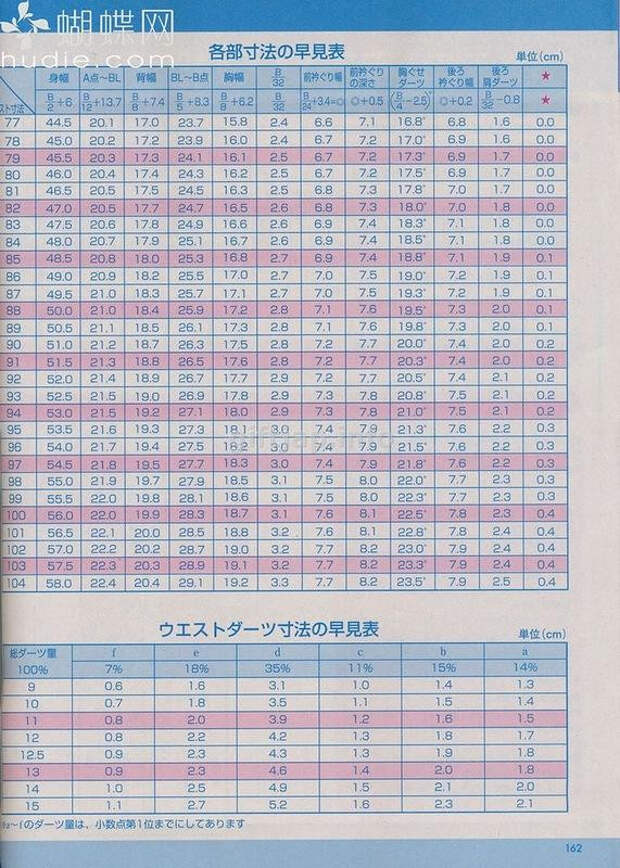 蝴蝶网
hudie.com
各部寸法の早見表
単位(cm)
スト寸法 身幅 A点～BL 背幅 BL～B点 胸幅 B/32 前衿ぐり幅 前衿ぐりの深さ 胸ぐせダーツ 後ろ衿ぐり幅 後ろ肩ダーツ ★
B/2+6 B/12+13.7 B/8+7.4 B/5+8.3 B/8+6.2 B/32 B/24+3.4=◎ ◎+0.5 (B/4-2.5)° ◎+0.2 B/32-0.8 ★
77 44.5 20.1 17.0 23.7 15.8 2.4 6.6 7.1 16.8° 6.8 1.6 0.0
78 45.0 20.2 17.2 23.9 16.0 2.4 6.7 7.2 17.0° 6.9 1.6 0.0
79 45.5 20.3 17.3 24.1 16.1 2.5 6.7 7.2 17.3° 6.9 1.7 0.0
80 46.0 20.4 17.4 24.3 16.2 2.5 6.7 7.2 17.5° 6.9 1.7 0.0
81 46.5 20.5 17.5 24.5 16.3 2.5 6.8 7.3 17.8° 7.0 1.7 0.0
82 47.0 20.5 17.7 24.7 16.5 2.6 6.8 7.3 18.0° 7.0 1.8 0.0
83 47.5 20.6 17.8 24.9 16.6 2.6 6.9 7.4 18.3° 7.1 1.8 0.0
84 48.0 20.7 17.9 25.1 16.7 2.6 6.9 7.4 18.5° 7.1 1.8 0.0
85 48.5 20.8 18.0 25.3 16.8 2.7 6.9 7.4 18.8° 7.1 1.9 0.1
86 49.0 20.9 18.2 25.5 17.0 2.7 7.0 7.5 19.0° 7.2 1.9 0.1
87 49.5 21.0 18.3 25.7 17.1 2.7 7.0 7.5 19.3° 7.2 1.9 0.1
88 50.0 21.0 18.4 25.9 17.2 2.8 7.1 7.6 19.5° 7.3 2.0 0.1
89 50.5 21.1 18.5 26.1 17.3 2.8 7.1 7.6 19.8° 7.3 2.0 0.1
90 51.0 21.2 18.7 26.3 17.5 2.8 7.2 7.7 20.0° 7.4 2.0 0.2
91 51.5 21.3 18.8 26.5 17.6 2.8 7.2 7.7 20.3° 7.4 2.0 0.2
92 52.0 21.4 18.9 26.7 17.7 2.9 7.2 7.7 20.5° 7.4 2.1 0.2
93 52.5 21.5 19.0 26.9 17.8 2.9 7.3 7.8 20.8° 7.5 2.1 0.2
94 53.0 21.5 19.2 27.1 18.0 2.9 7.3 7.8 21.0° 7.5 2.1 0.2
95 53.5 21.6 19.3 27.3 18.1 3.0 7.4 7.9 21.3° 7.6 2.2 0.3
96 54.0 21.7 19.4 27.5 18.2 3.0 7.4 7.9 21.5° 7.6 2.2 0.3
97 54.5 21.8 19.5 27.7 18.3 3.0 7.4 7.9 21.8° 7.6 2.2 0.3
98 55.0 21.9 19.7 27.9 18.5 3.1 7.5 8.0 22.0° 7.7 2.3 0.3
99 55.5 22.0 19.8 28.1 18.6 3.1 7.5 8.0 22.3° 7.7 2.3 0.3
100 56.0 22.0 19.9 28.3 18.7 3.1 7.6 8.1 22.5° 7.8 2.3 0.4
101 56.5 22.1 20.0 28.5 18.8 3.2 7.6 8.1 22.8° 7.8 2.4 0.4
102 57.0 22.2 20.2 28.7 19.0 3.2 7.7 8.2 23.0° 7.9 2.4 0.4
103 57.5 22.3 20.3 28.9 19.1 3.2 7.7 8.2 23.3° 7.9 2.4 0.4
104 58.0 22.4 20.4 29.1 19.2 3.3 7.7 8.2 23.5° 7.9 2.5 0.4
ウエストダーツ寸法の早見表
単位(cm)
総ダーツ量 f e d c b a
100% 7% 18% 35% 11% 15% 14%
9 0.6 1.6 3.1 1.0 1.4 1.3
10 0.7 1.8 3.5 1.1 1.5 1.4
11 0.8 2.0 3.9 1.2 1.6 1.5
12 0.8 2.2 4.2 1.3 1.8 1.7
12.5 0.9 2.3 4.3 1.3 1.9 1.8
13 0.9 2.3 4.6 1.4 2.0 1.8
14 1.0 2.5 4.9 1.5 2.1 2.0
15 1.1 2.7 5.2 1.6 2.3 2.1
a～fのダーツ量は、小数点第1位までにしてあります
162